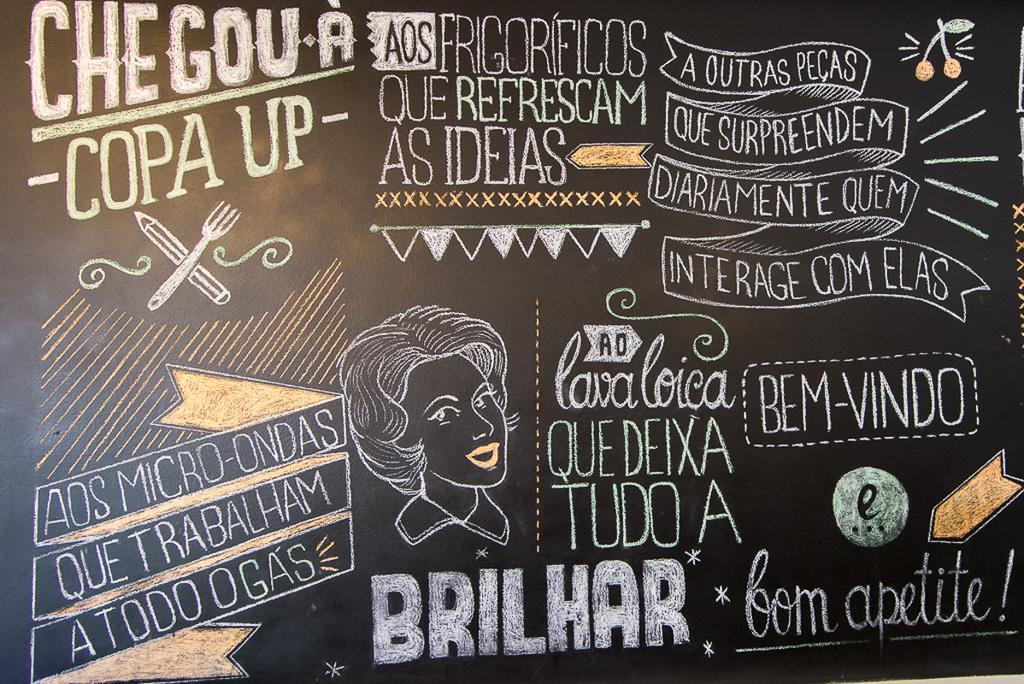 CHEGOU À
COPA UP
AOS FRIGORÍFICOS
QUE REFRESCAM
AS IDEIAS
A OUTRAS PEÇAS
QUE SURPREENDEM
DIARIAMENTE QUEM
INTERAGE COM ELAS
AOS MICRO-ONDAS
QUE TRABALHAM
A TODO O GÁS
AO
lava loiça
QUE DEIXA
TUDO A
BRILHAR
BEM-VINDO
e...
bom apetite!